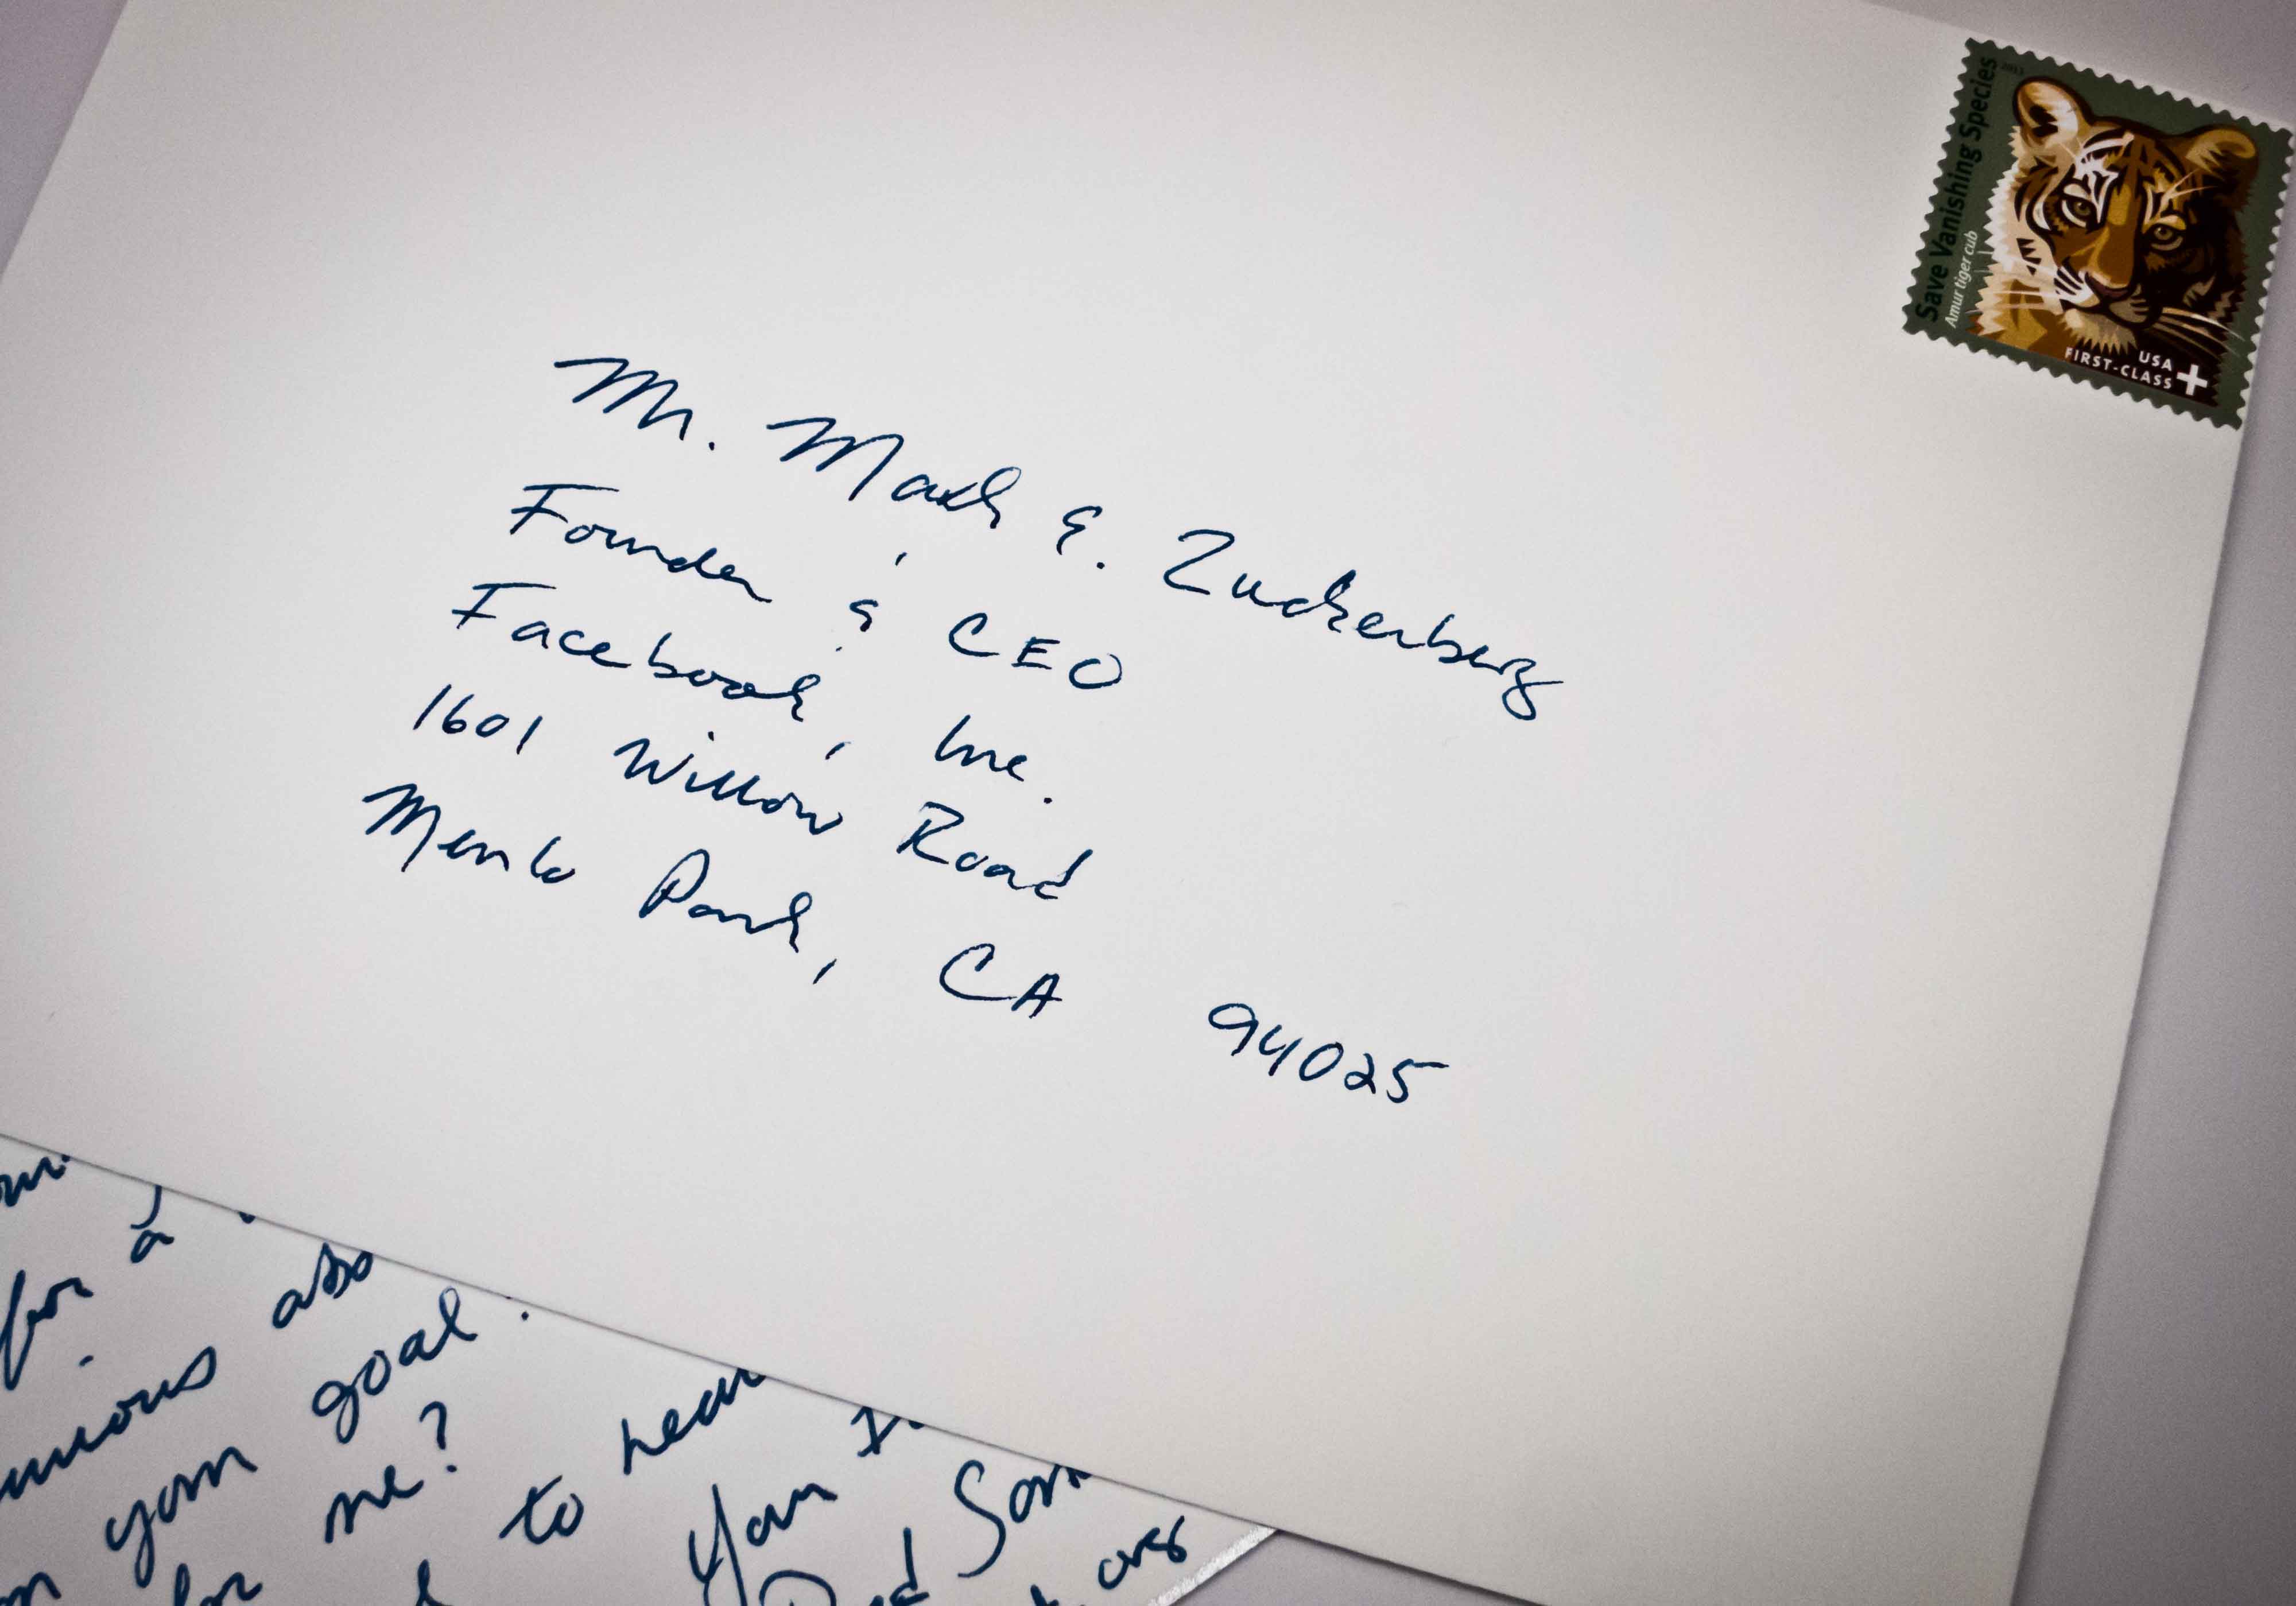 Save Vanishing Species
Amur tiger cub
2013
USA
FIRST-CLASS
+
Mr. Mark E. Zuckerberg
Founder & CEO
Facebook, Inc.
1601 Willow Road
Menlo Park, CA 94025
for a
also
goal.
your
me?
to hear
for
Your